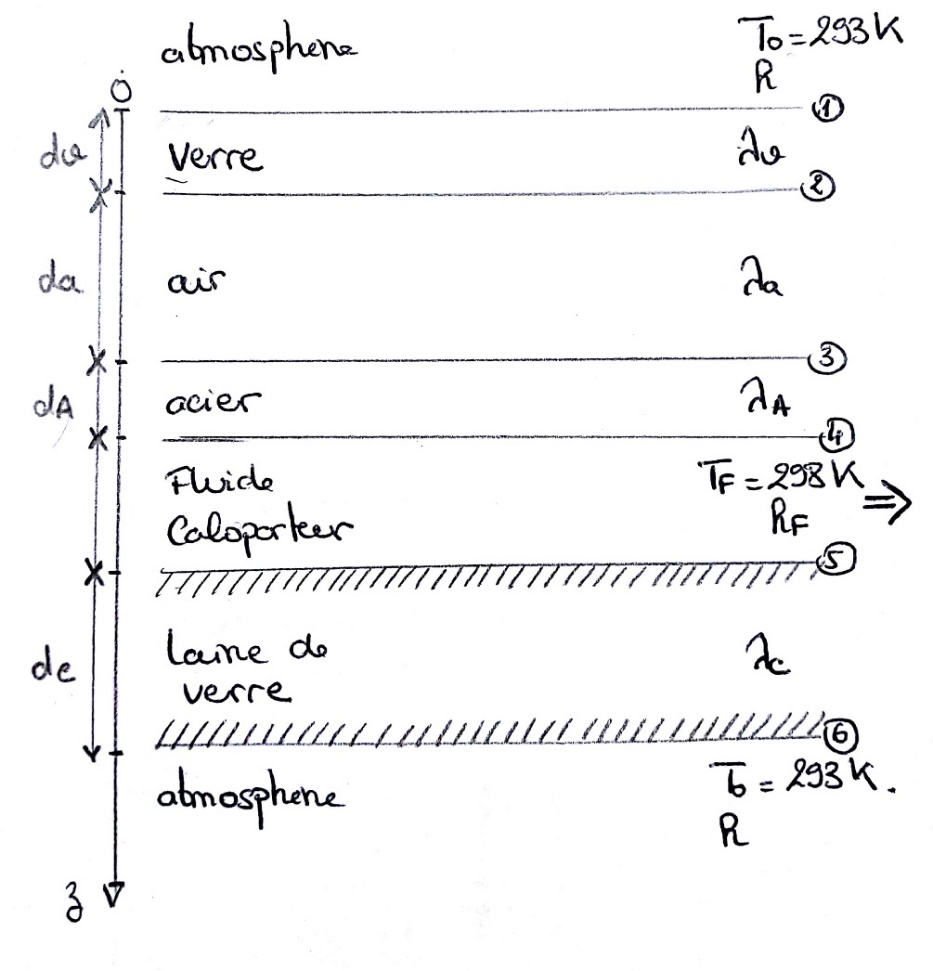 atmosphere T₀ = 293 K
R
O
①
dv Verre λv
②
da air λa
③
dA acier λA
④
Fluide TF = 298 K ⇒
Caloporteur RF
⑤
dc laine de λc
verre
⑥
atmosphere T₀ = 293 K.
R
z